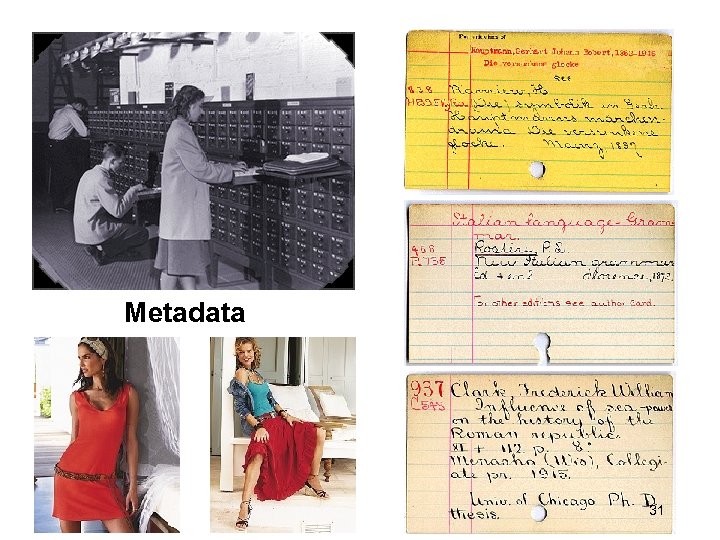 Hauptmann, Gerhart Johann Robert, 1862-1946
Die versunkene glocke
see
838
Die symbolik in Gerh.
Hauptmanns märchen-
drama Die versunkene
glocke. Mainz, 1897
Metadata
Italian language - Gram-
mar
468
R735 New Italian grammar
Florence, 1872
For other editions see author card.
937 Clark Frederick William
C549 Influence of sea-power
on the history of the
Roman republic.
112 p. 8°.
Menasha (Wis), Collegi-
ate pr. 1915.
Univ. of Chicago Ph. D
thesis.
31